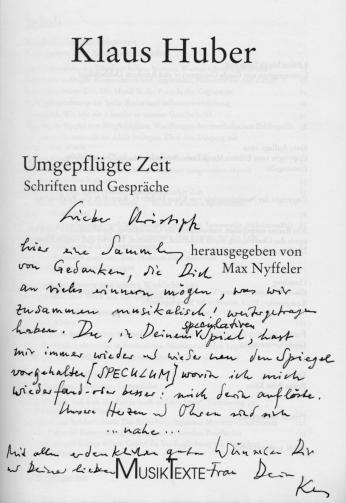 Klaus Huber
Umgepflügte Zeit
Schriften und Gespräche
Lieber Christoph
hier eine Sammlung
herausgegeben von
von Gedanken, die Dich
Max Nyffeler
an vieles erinnern mögen, was wir
zusammen musikalisch! weitergetragen
haben. Du, in Deinem speculativen Spiel, hast
mir immer wieder und wieder neu den Spiegel
vorgehalten [SPECULUM] worin ich mich
wiederfand – oder besser: mich darin auflöste.
Unsere Herzen und Ohren sind sich
... nahe ...
Mit allen erdenklichen guten Wünschen Dir
u Deiner lieben Frau Dein
MusikTexte